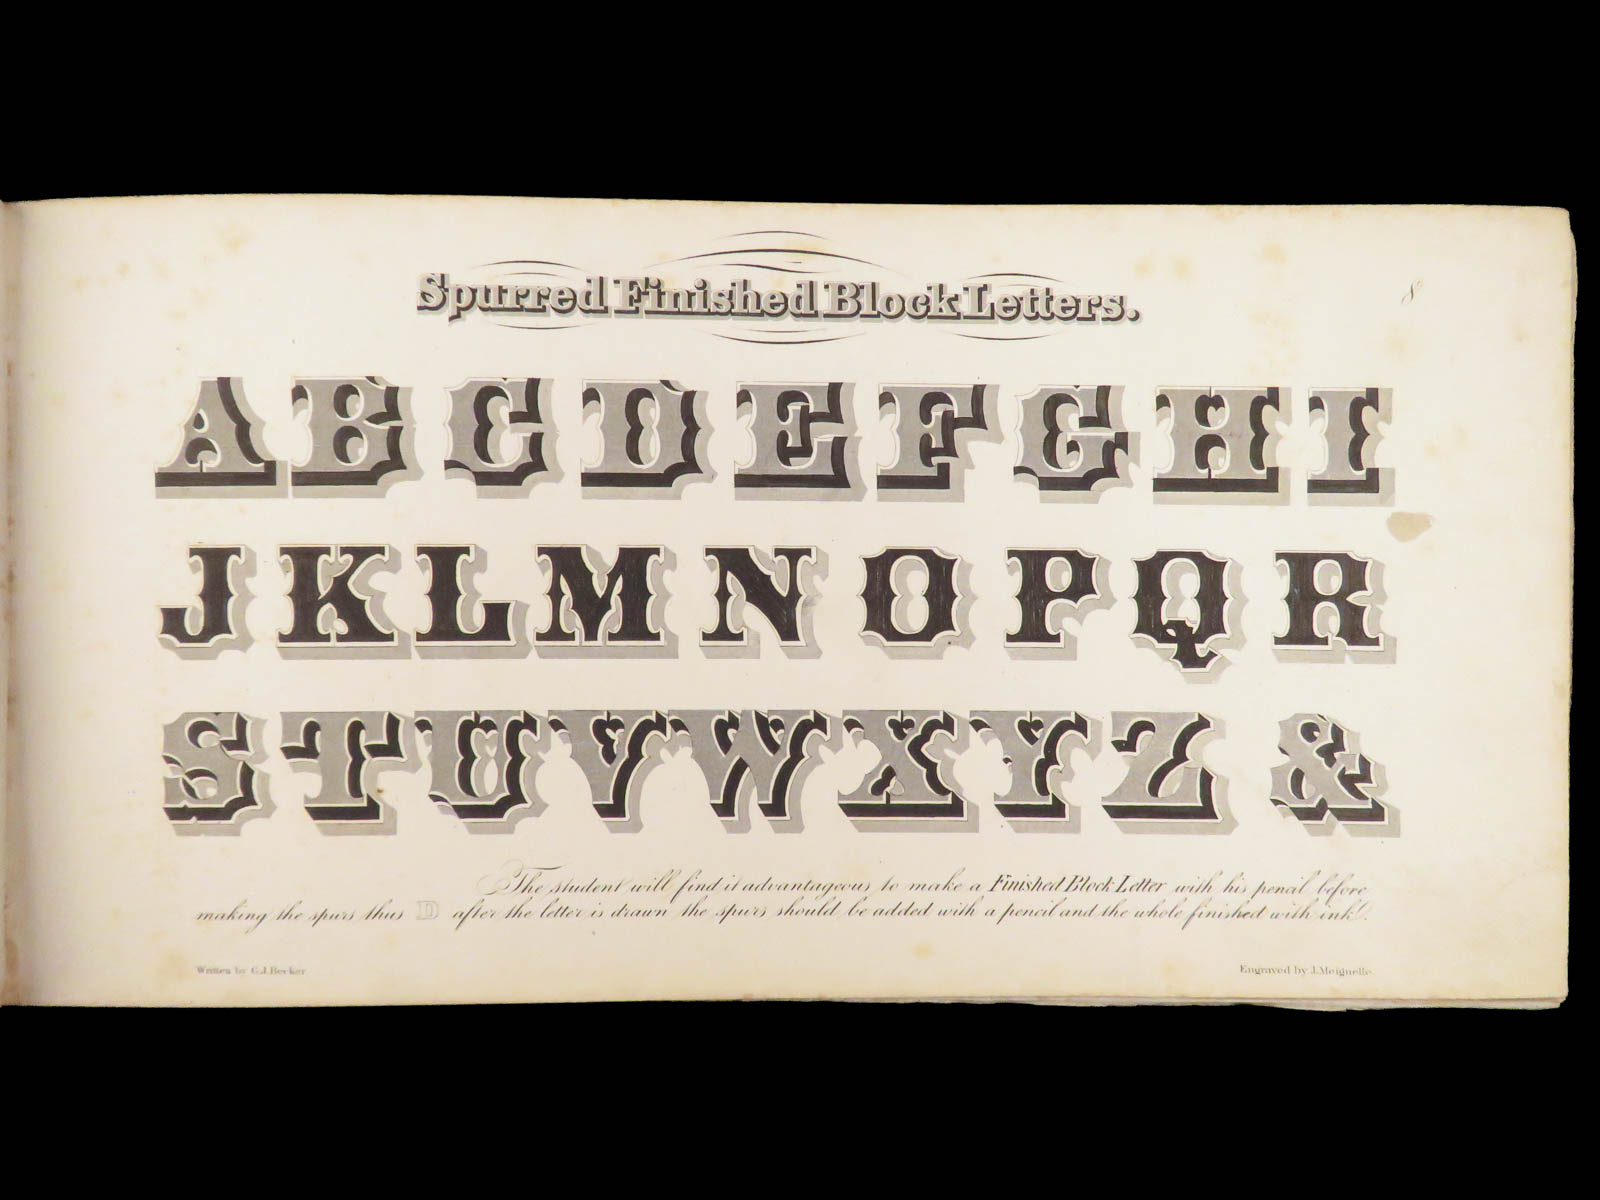 Spurred Finished Block Letters.
8
A B C D E F G H I
J K L M N O P Q R
S T U V W X Y Z &
The student will find it advantageous to make a Finished Block Letter with his pencil before
making the spurs thus D after the letter is drawn the spurs should be added with a pencil and the whole finished with ink.
Written by G. J. Becker.
Engraved by J. Meignelle.